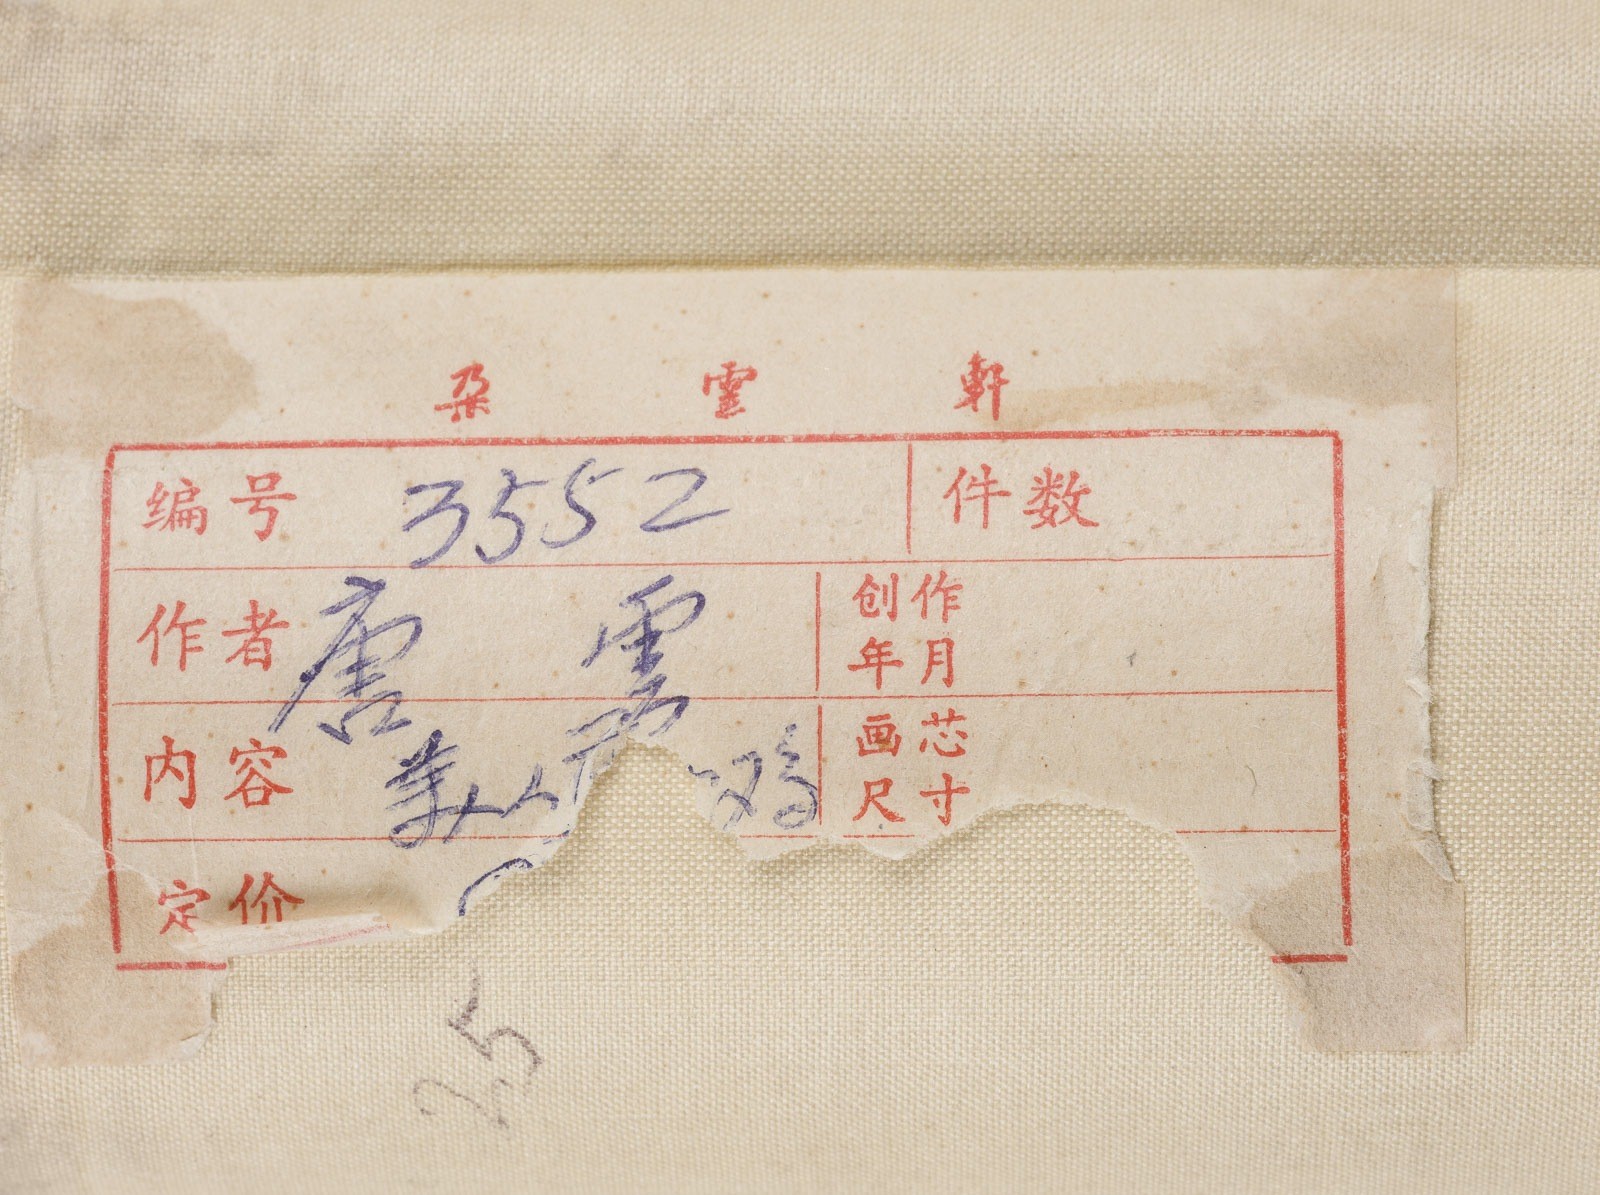 朵雲軒
编号 3552 件数
作者 唐雲 创作年月
内容 鸡 画芯尺寸
定价
25